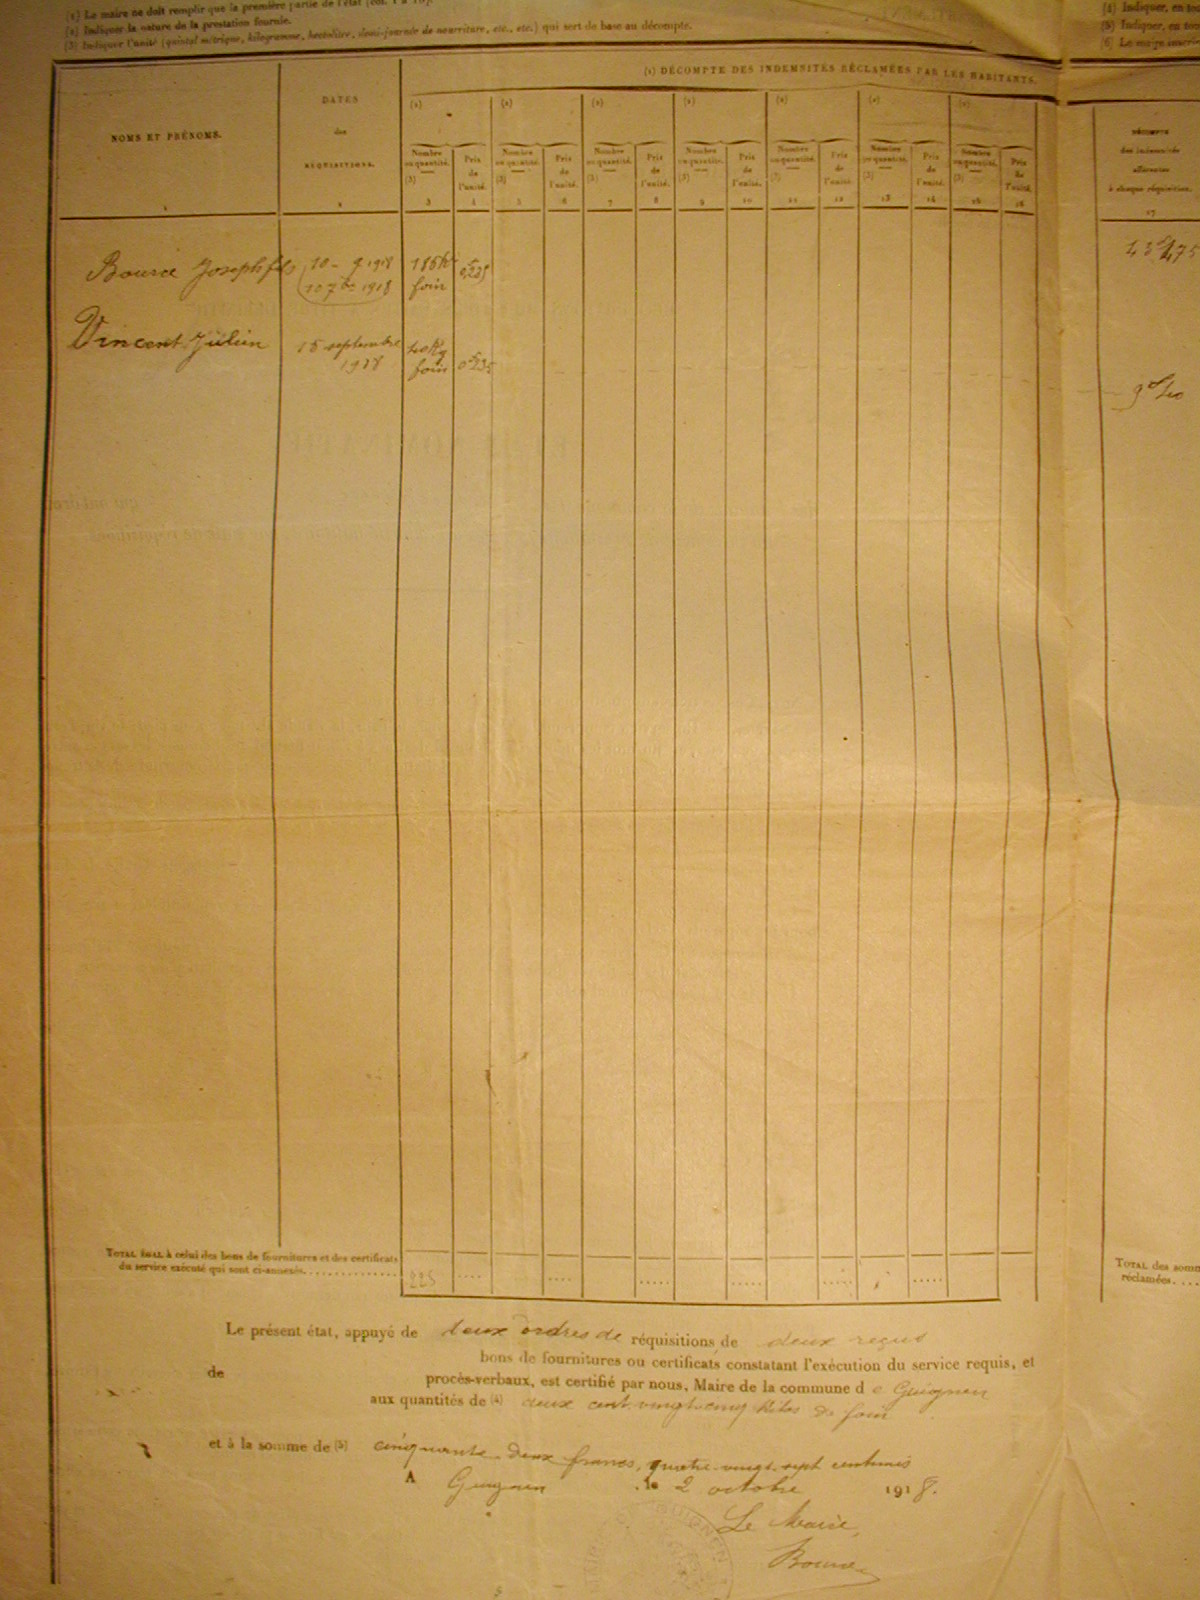 (1) Le maire ne doit remplir que la première partie de l'état (col. 1 à 16).
(2) Indiquer la nature de la prestation fournie.
(3) Indiquer l'unité (quintal métrique, kilogramme, hectolitre, demi-journée de nourriture, etc., etc.) qui sert de base au décompte.
(4) Indiquer, en
(5) Indiquer, en
(6) Le
(1) DÉCOMPTE DES INDEMNITÉS RÉCLAMÉES PAR LES HABITANTS.
NOMS ET PRÉNOMS.
DATES
des
RÉQUISITIONS.
(2) (2) (2) (2) (2) (2) (2)
Nombre ou quantité. (3) Prix de l'unité. Nombre ou quantité. (3) Prix de l'unité. Nombre ou quantité. (3) Prix de l'unité. Nombre ou quantité. (3) Prix de l'unité. Nombre ou quantité. (3) Prix de l'unité. Nombre ou quantité. (3) Prix de l'unité. Nombre ou quantité. (3) Prix de l'unité.
DÉCOMPTE
des indemnités
afférentes
à chaque réquisition.
1 2 3 4 5 6 7 8 9 10 11 12 13 14 15 16 17
Bource Joseph fils 10 - 9 1918 185k 0f235 43f475
10 7bre 1918 foin
Vincent Julien 15 septembre 40 Kg
1918 foin 0f235 9f40
TOTAL ÉGAL à celui des bons de fournitures et des certificats
du service exécuté qui sont ci-annexés. 225
TOTAL des
réclamées.
Le présent état, appuyé de deux ordres de réquisitions de deux reçus
bons de fournitures ou certificats constatant l'exécution du service requis, et
de procès-verbaux, est certifié par nous, Maire de la commune d e Guignen
aux quantités de (4) deux cent vingt-cinq kilos de foin
et à la somme de (5) cinquante-deux francs, quatre-vingt-sept centimes
A Guignen , le 2 octobre 1918.
Le Maire,
Bource